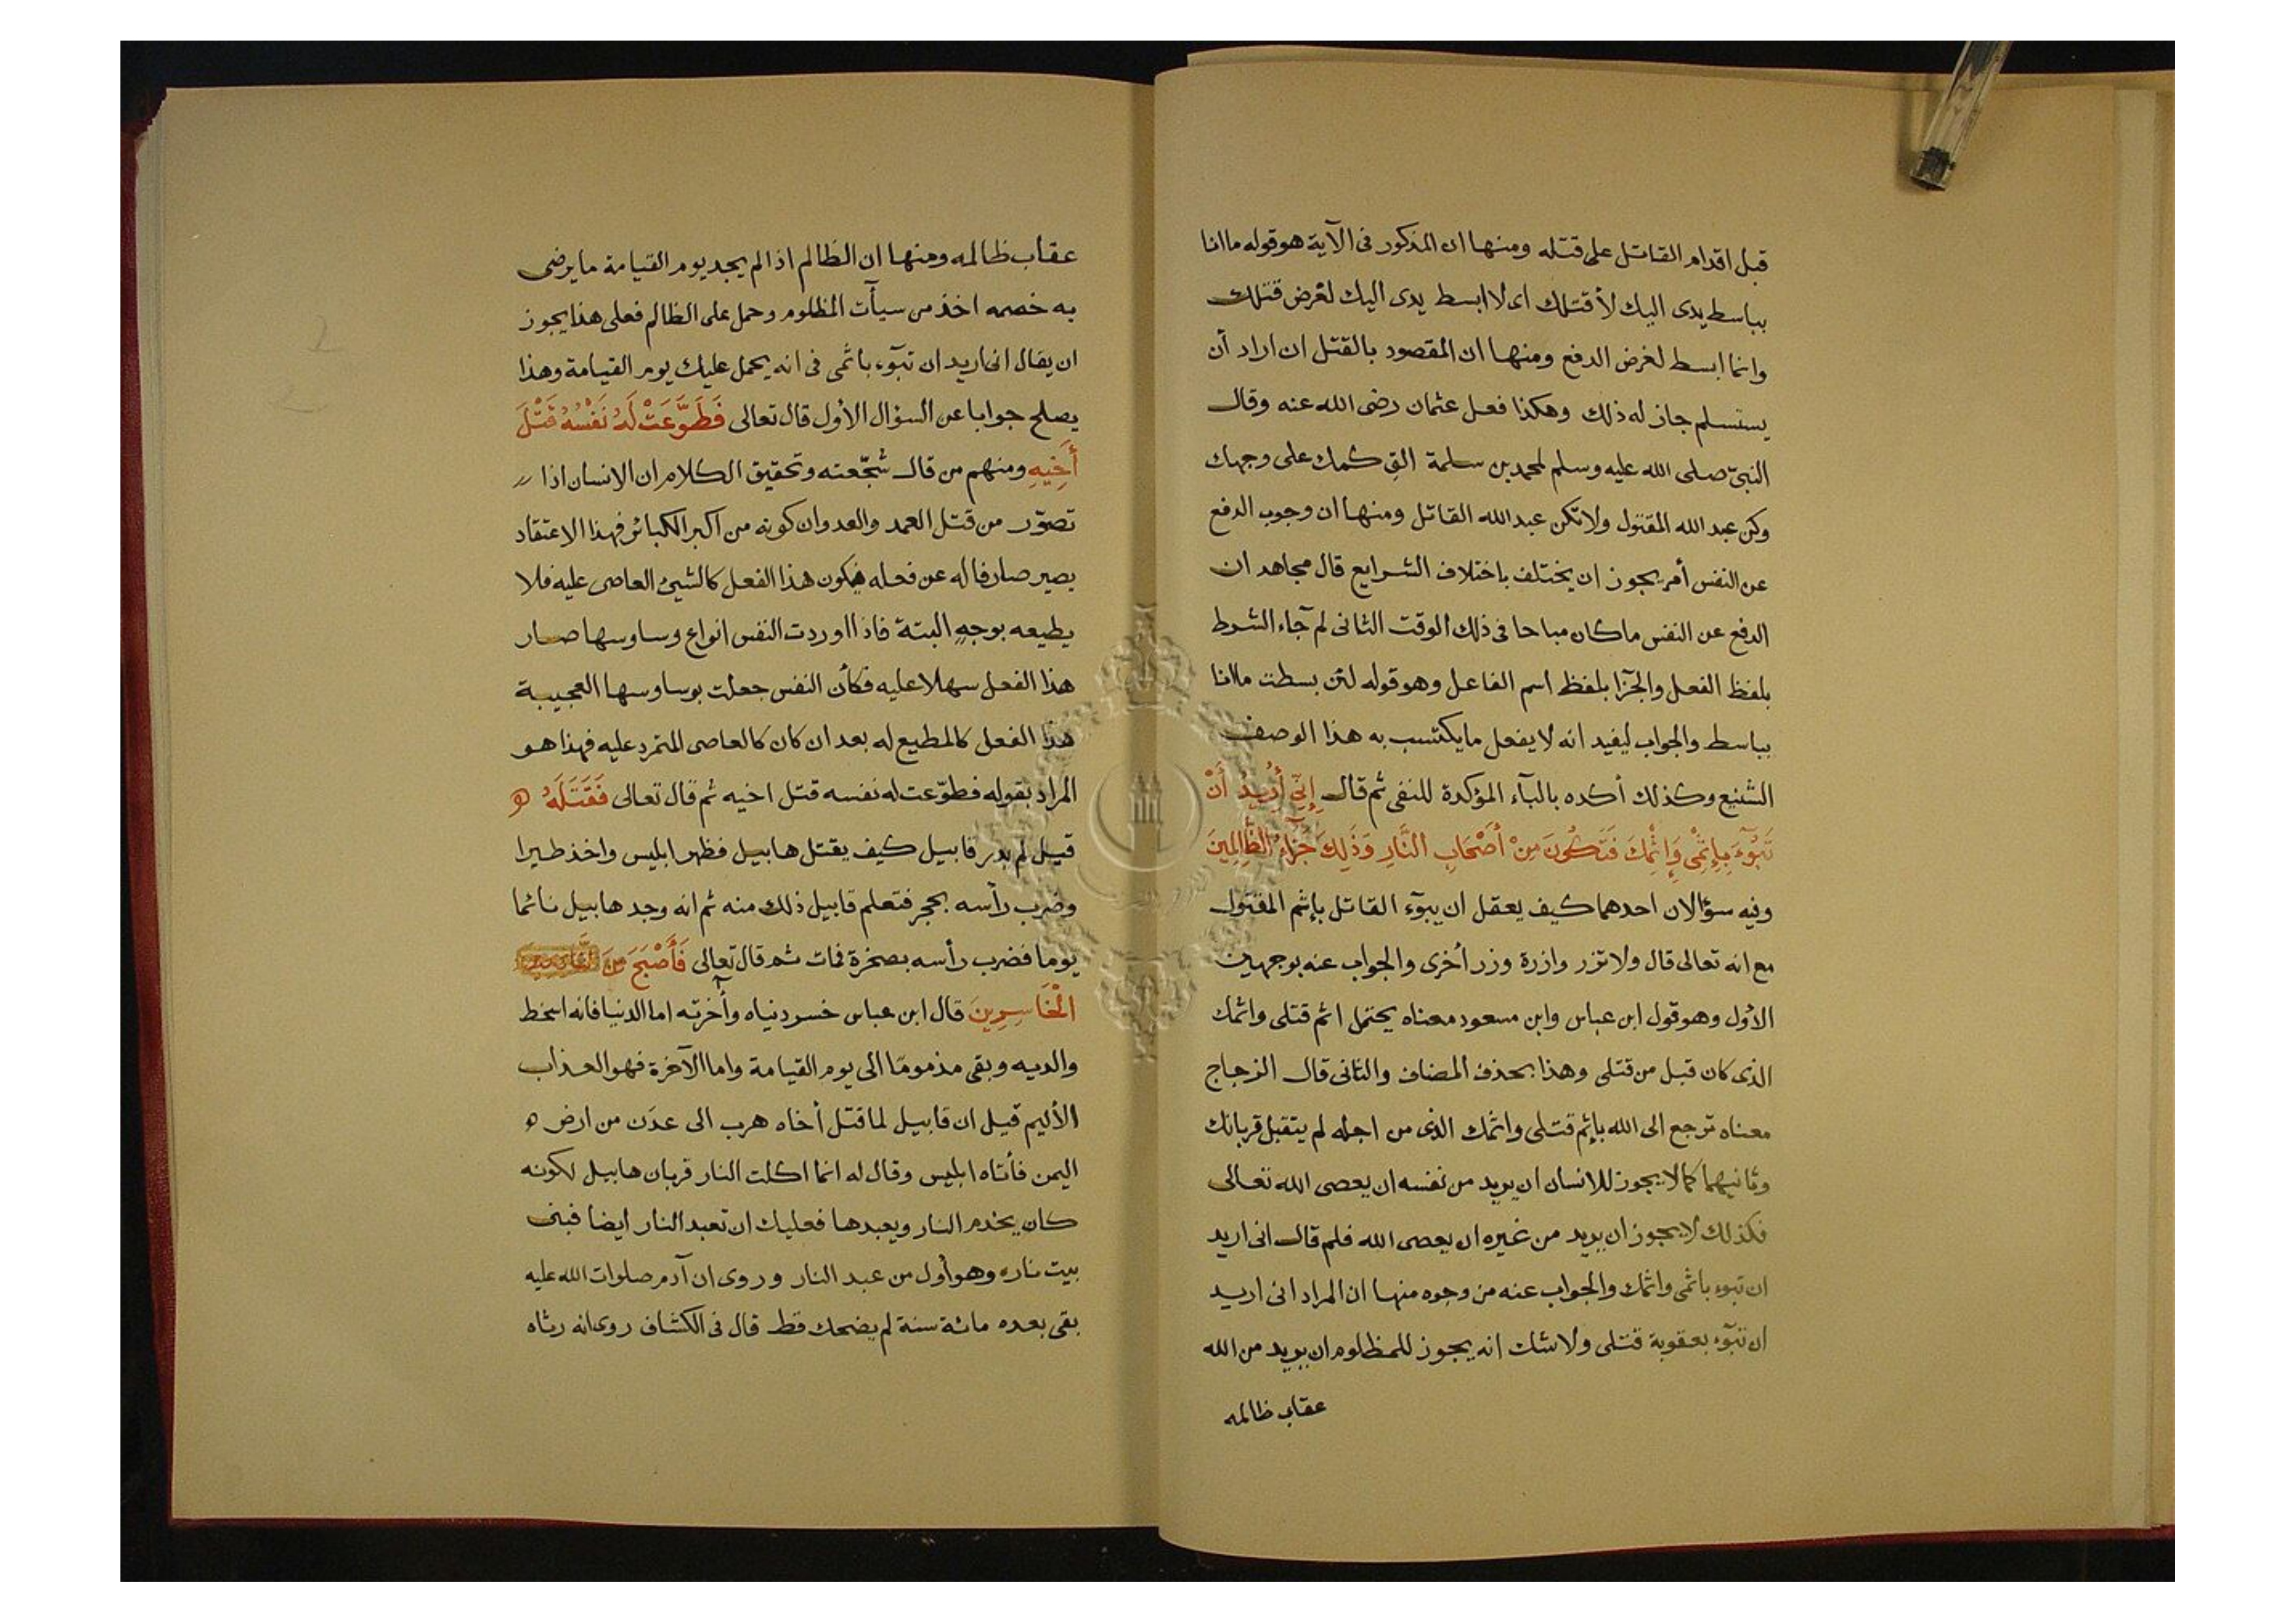 قبل اقدام القاتل على قتله ومنها ان المذكور فى الآية هو قوله ما انا
بباسط يدى اليك لأقتلك اى لا ابسط يدى اليك لغرض قتلك
وانما ابسط لغرض الدفع ومنها ان المقصود بالقتل ان اراد أن
يستسلم جاز له ذلك وهكذا فعل عثمان رضى الله عنه وقال
النبىّ صلى الله عليه وسلم لمحمد بن سلمة القِ كمك على وجهك
وكن عبد الله المقتول ولا تكن عبد الله القاتل ومنها ان وجوب الدفع
عن النفس أمر يجوز ان يختلف باختلاف الشرايع قال مجاهد ان
الدفع عن النفس ما كان مباحا فى ذلك الوقت الثانى لم جآء الشرط
بلفظ الفعل والجزا بلفظ اسم الفاعل وهو قوله لئن بسطت ما انا
بباسط والجواب ليفيد انه لا يفعل ما يكتسب به هذا الوصف
الشنيع وكذلك أكده بالبآء المؤكدة للنفى ثم قال إِنِّىٓ أُرِيدُ أَنْ
تَبُوٓءَ بِإِثْمِى وَإِثْمِكَ فَتَكُونَ مِنْ أَصْحَابِ النَّارِ وَذَلِكَ جَزَآءُ الظَّالِمِينَ
وفيه سؤالان احدهما كيف يعقل ان يبوّء القاتل بإثم المقتول
مع انه تعالى قال ولا تزر وازرة وزر أخرى والجواب عنه بوجهين
الأول وهو قول ابن عباس وابن مسعود معناه يحتمل اثم قتلى واثمك
الذى كان قبل من قتلى وهذا بحذف المضاف والثانى قال الزجاج
معناه ترجع الى الله بإثم قتلى واثمك الذى من اجله لم يتقبل قربانك
وثانيهما كما لا يجوز للانسان ان يريد من نفسه ان يعصى الله تعالى
فكذلك لا يجوز ان يريد من غيره ان يعصى الله فلم قال انى اريد
ان تبوء باثمى واثمك والجواب عنه من وجوه منها ان المراد انى اريد
ان تبوّء بعقوبة قتلى ولا شك انه يجوز للمظلوم ان يريد من الله
عقاب ظالمه
عقاب ظالمه ومنها ان الظالم اذا لم يجد يوم القيامة ما يرضى
به خصمه اخذ من سيأت المظلوم وحمل على الظالم فعلى هذا يجوز
ان يقال انى اريد ان تبوّء باثمى فى انه يحمل عليك يوم القيامة وهذا
يصلح جوابا عن السؤال الأول قال تعالى فَطَوَّعَتْ لَهُ نَفْسُهُ قَتْلَ
أَخِيهِ ومنهم من قال شجّعته وتحقيق الكلام ان الانسان اذا
تصوّر من قتل العمد والعدوان كونه من اكبر الكبائر فهذا الاعتقاد
يصير صارفا له عن فعله فيكون هذا الفعل كالشئ العاصى عليه فلا
يطيعه بوجهٍ البتة فاذا اوردت النفس انواع وساوسها صار
هذا الفعل سهلا عليه فكأن النفس جعلت بوساوسها العجيبة
هذا الفعل كالمطيع له بعد ان كان كالعاصى المتمرد عليه فهذا هو
المراد بقوله فطوّعت له نفسه قتل اخيه ثم قال تعالى فَقَتَلَهُ
قيل لم يدر قابيل كيف يقتل هابيل فظهر ابليس واخذ طيرا
وضرب رأسه بحجر فتعلم قابيل ذلك منه ثم انه وجد هابيل نائما
يوما فضرب رأسه بصخرة فمات ثم قال تعالى فَأَصْبَحَ مِنَ
الْخَاسِرِينَ قال ابن عباس خسر دنياه وأخرته اما الدنيا فانه اسخط
والديه وبقى مذموما الى يوم القيامة واما الآخرة فهو العذاب
الأليم قيل ان قابيل لما قتل أخاه هرب الى عدَن من ارض
اليمن فأتاه ابليس وقال له انما اكلت النار قربان هابيل لكونه
كان يخدم النار ويعبدها فعليك ان تعبد النار ايضا فبنى
بيت ناره وهو أول من عبد النار وروى ان آدم صلوات الله عليه
بقى بعده مائة سنة لم يضحك قط قال فى الكشاف روى انه رثاه